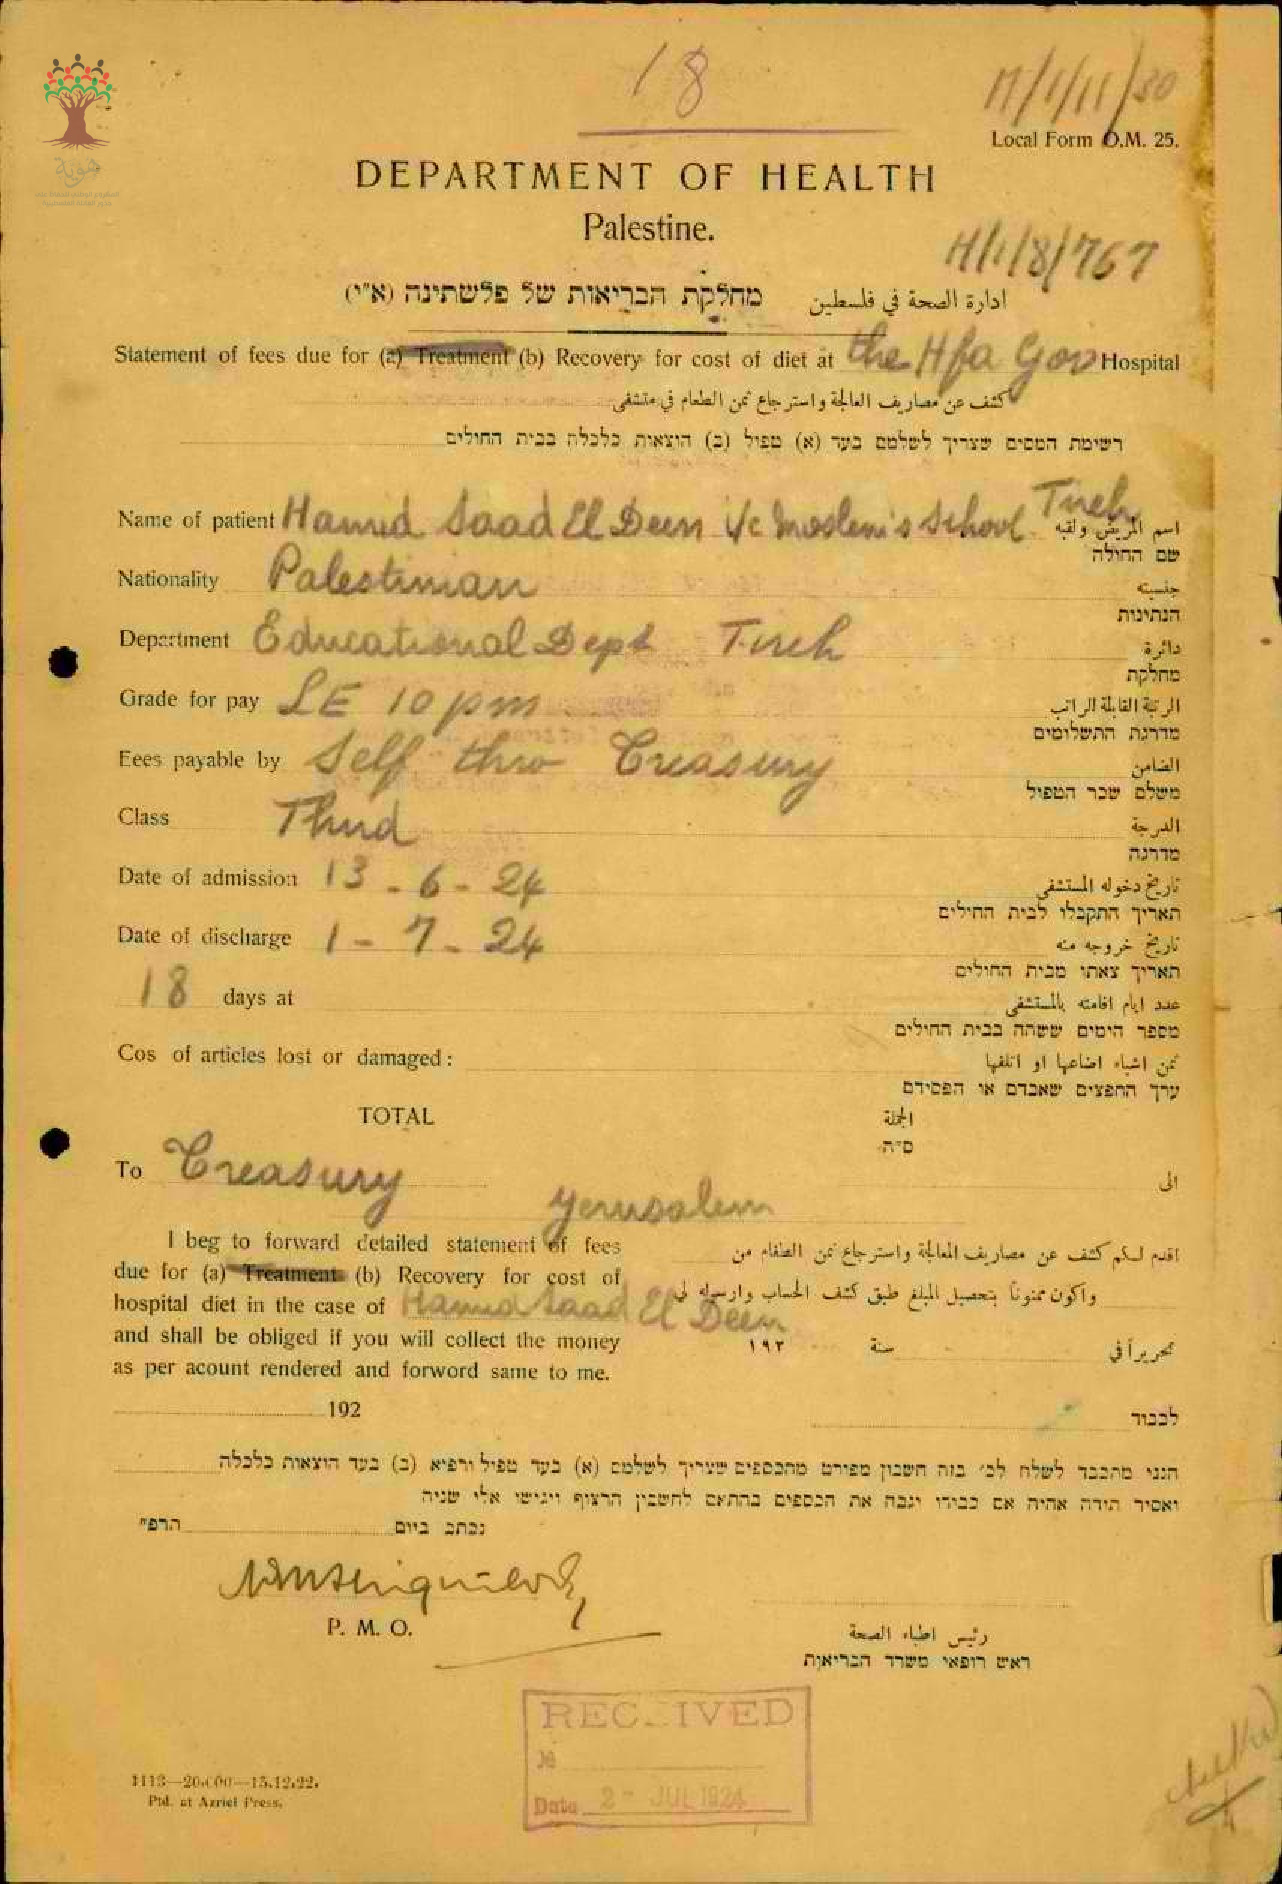 18
H/1/11/30
Local Form O.M. 25.
هوية
DEPARTMENT OF HEALTH
Palestine.
H/1/8/767
מחלקת הבריאות של פלשתינה (א"י) ادارة الصحة في فلسطين
Statement of fees due for (a) Treatment (b) Recovery for cost of diet at the Hfa Gov Hospital
كشف عن مصاريف المعالجة واسترجاع ثمن الطعام في متشفى
רשימת המסים שצריך לשלמם בעד (א) טפול (ב) הוצאות כלכלה בבית החולים
Name of patient Hamid Saad El Deen i/c Moslem's School Tireh اسم المريض ولقبه
שם החולה
Nationality Palestinian جنسيته
הנתינות
Department Educational Dept Tireh دائرة
מחלקת
Grade for pay LE 10 pm الرتبة القابلة الراتب
מדרגת התשלומים
Fees payable by Self thro Treasury الضامن
משלם שכר הטפול
Class Third الدرجة
מדרגה
Date of admission 13-6-24 تاريخ دخوله المستشفى
תאריך התקבלו לבית החולים
Date of discharge 1-7-24 تاريخ خروجه منه
תאריך צאתו מבית החולים
18 days at عدد ايام اقامته بالمستشفى
מספר הימים ששהה בבית החולים
Cos of articles lost or damaged: ثمن اشياء اضاعها او اتلفها
ערך החפצים שאבדם או הפסידם
TOTAL الجملة
ס"ה
To Treasury الى
Jerusalem
I beg to forward detailed statement of fees
due for (a) Treatment (b) Recovery for cost of
hospital diet in the case of Hamid Saad El Deen
and shall be obliged if you will collect the money
as per acount rendered and forword same to me.
192
اقدم لكم كشف عن مصاريف المعالجة واسترجاع ثمن الطعام من
واكون ممنونا بتحصيل المبلغ طبق كشف الحساب وارسوله لي
تحريراً في سنة ١٩٢
לכבוד
הנני מתכבד לשלח לכ' בזה חשבון מפורט מהכספים שצריך לשלמם (א) בעד טפול ורפוא (ב) בעד הוצאות כלכלה
ואסיר תודה אהיה אם כבודו יגבה את הכספים בהתאם לחשבון הרצוף ויגישו אלי שניה
נכתב ביום הרפ"
P. M. O.
رئيس اطباء الصحة
ראש רופאי משרד הבריאות
RECEIVED
№
Date 2- JUL 1924
1113—20.000—15.12.22.
Ptd. at Azriel Press.